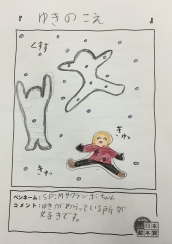 ゆきのこえ
くすす
ぎゅっ
ぎゅっ
ペンネーム：SPiMサクランボちゃん
コメント：ゆきがわらっている所が
大好きです。
日本
絵本賞